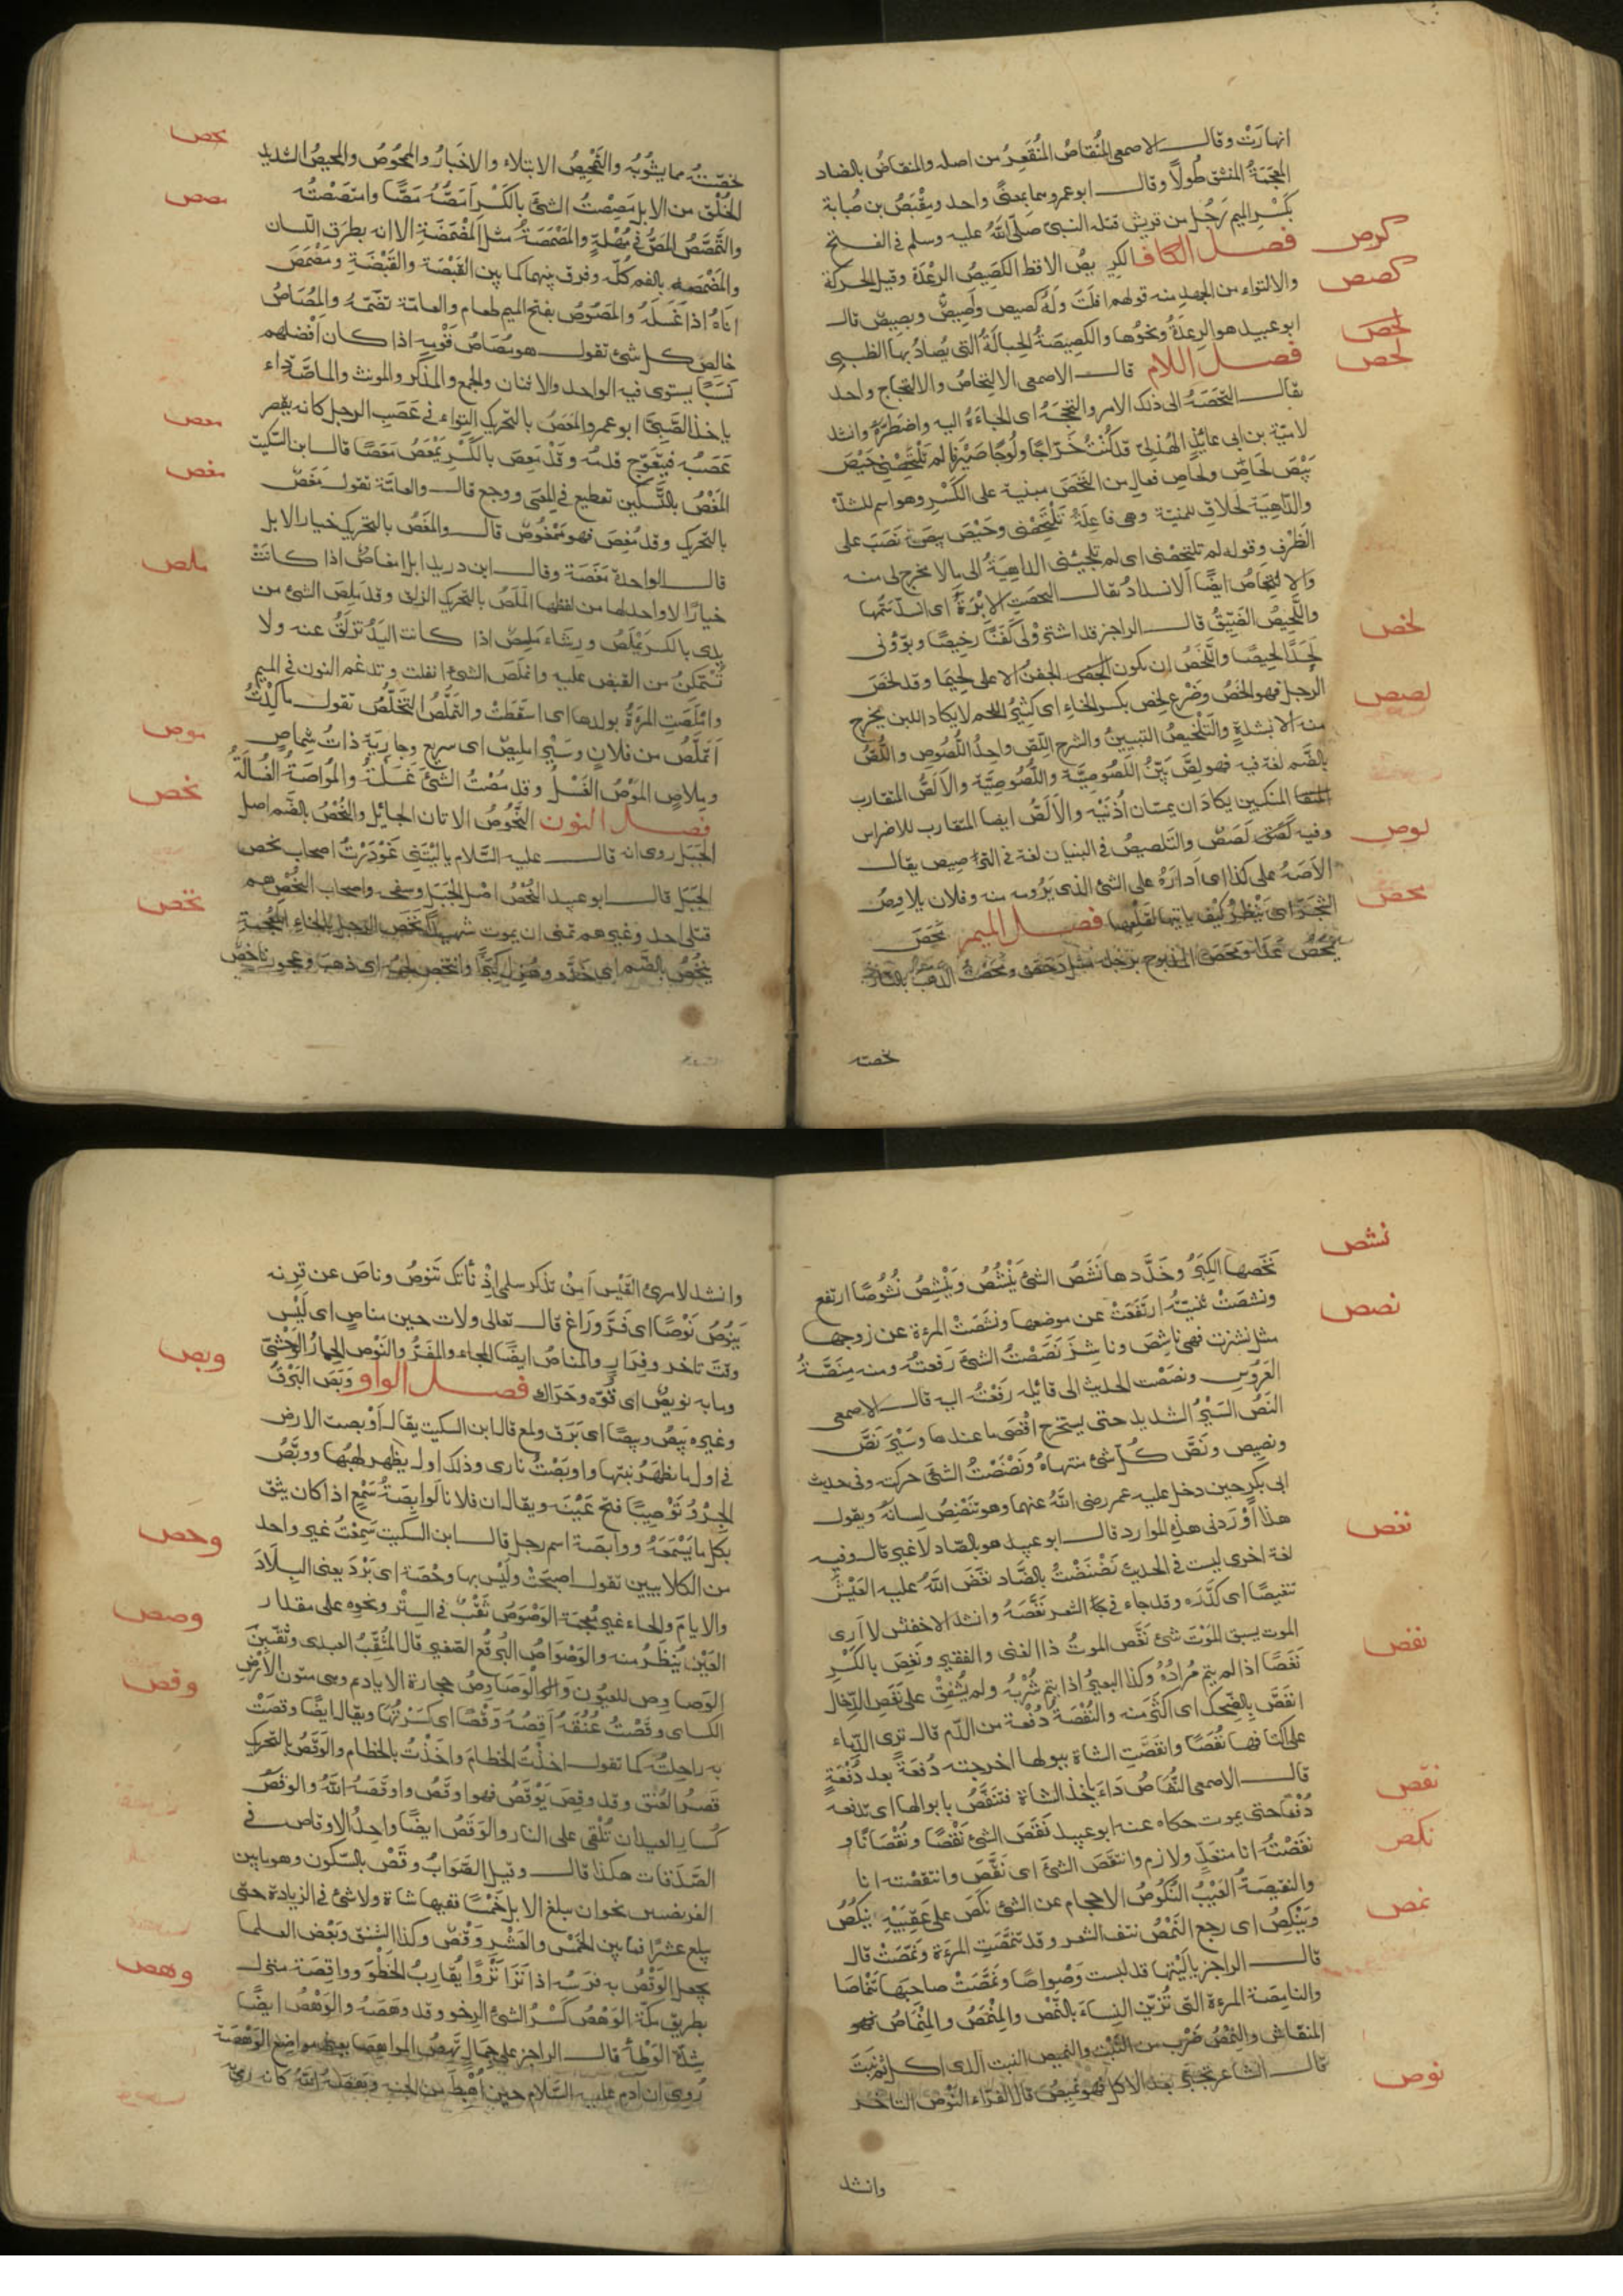 انهارَتْ وقال الاصمعى المُنقاصُ المُنْقَعِرُ من اصله والمنقاضُ بالضاد
المعجَمَةُ المنشق طُولًا وقال ابو عمرو هما بمعنًى واحد ومِقْيَصُ بن صُبابة
بكَسْرِ الميم رَجُل من قريش قتله النبىّ صَلّى اللهُ عليه وسلم فى الفتح
كرص
فصل الكاف الكَرِيصُ الاقط الكَصِيصُ الرِعْدَة وقيل الحركة
كصص
والالتواء من الجهد منه قولهم افلَتَ وله كَصيص واَصِيصٌ وبَصِيصٌ قال
ابو عبيد هو الرِعدَةُ ونحوُها والكَصِيصَةُ الحِبالَةُ التى يُصادُ بها الظبى
لحص
لحص
فصل اللام قال الاصمعى الالتحاصُ والالتحاج واحد
يقال التحَصَهُ الى ذلك الامر والتحَجَهُ اى الجاءَهُ اليه واضطرَّهُ وانشد
لاميّة بن ابى عائذٍ الهُذلىّ قد كُنْتُ خَرّاجًا ولُوجًا صَيْرفًا لم تَلْتَحِصْنِى حَيْصَ
بَيْصَ لَحَاصِ ولَحَاصِ فعالِ من التحَصَ مبنية على الكَسْرِ وهو اسم للشدّة
والدّاهِيَة لحلاقِ للمنيّة وهى فاعِلَةُ تَلْتَحِصْنى وحَيْصَ بيصَ نَصَبَ على
الظَرْفِ وقوله لم تلتحصنى اى لم تلجئنى الداهِيَةُ الى ما لا مخرج لى منه
والالتِحاصُ ايضًا الانسدادُ يقال التحصَتِ الابْرَةُ اى انسدّ سَمّها
لخص
واللَّحِيصُ الضَيّقُ قال الراجز قد اشتَروْا لى كَفَنًا رخِيصًا وبوّؤنى
لَحَدًا لحِيصًا واللَّخَصُ ان يكون الجفنُ الاعلى لحِيمًا وقد لخَصَ
لصص
الرجل فهو الخَصُ وضَرْع لَخِص بكسر الخاءِ اى كثِيرُ اللحم لا يكاد اللبن يخرج
منه الا بشدةٍ والتَلْخيصُ التبيينُ والشرح اللّصّ واحِدُ اللُّصُوص واللُّصّ
بالضّم لغة فيه فهو لِصّ بَيّنُ اللَصُوصِيَّة واللُّصُوصِيَّة والاَلَصُّ المتقارب
المنكبين يكادَان يمسّان اُذُنَيْه والاَلَصُّ ايضا المتقارب للاضراس
لوص
وفيه لَصَصٌ والتَلصيصُ فى البنيان لغة فى الترصيص يقال
الاَصَهُ على كذا اى اَدارَهُ على الشئ الذى يَرُومه منه وفلان يلاوِصُ
محص
الشجَرَ اى يَنْظرُ كَيْفَ ياتيها لقَلْعِها فصل الميم مَحَصَ
يَمْحَصُ عَدَا ومَحَصَ المذبوح برجله مثل دحَصَ ومَحَصْتُ الذهبَ بالنار
خصته
محص
خصّتُه مما يشوبُه والتَمْحِيصُ الابتلاء والاختبارُ والمَحْوُصُ والمَحِيصُ الشديد
مصص
الخَلْقِ من الابل مَصِصْتُ الشئَ بالكَسْرِ اَمَصُّهُ مَصًّا وامتَصَصْتُه
والتَّمَصُّصُ المَصُّ فى مُهْلَةٍ والمَصْمَصَةُ مثل المَضْمَضَةِ الا انه بطرَفِ اللسان
والمَضْمَضه بالفم كُلّه وفرق بينهما كما بين القَبْصَة والقَبْضَةِ ومَصْمَصَ
اناهُ اذا غَسَلَهُ والمَصُوصُ بفتح الميم طعام والعامّة تَضُمّهُ والمُصَاصُ
خالِصُ كل شئ تقول هو مُصَاصُ قَوْمِه اذا كان اَفْضلهم
نَسَبًا يستوى فيه الواحد والاثنان والجمع والمذكر والمونث والماصّة داء
معص
ياخذ الصَّبِىَّ ابو عمرو المَعَصُ بالتحريك التِواء فى عَصَبِ الرجل كانه يقصر
عَصَبُه فيتعَوّج قدمُه وقَدْ مَعِصَ بالكَسْرِ يَمْعَصُ مَعَصًا قال ابن السّكيت
مغص
المَغْصُ بالتَّسْكِين تقطيع فى المِعَى ووجع قال والعامّة تقول مَغَصٌ
بالتحريك وقد مُغِصَ فهو مَمْغُوصٌ قال والمَغَصُ بالتحريك خيار الابل
قال الواحدة مَغَصَة وقال ابن دريد ابل امغاصٌ اذا كانَتْ
ملص
خيارًا لا واحد لها من لفظها المَلَصُ بالتحريك الزلق وقد مَلِصَ الشئ من
يدى بالكسر يَمْلَصُ ورِشَاء مَلِصٌ اذا كانت اليَدُ تزلَقُ عنه ولا
تَسْتمكنُ من القبض عليه وانمَلَصَ الشئ انفلت وتدغم النون فى الميم
واملَصَتِ المرْءَةُ بولدها اى اسقَطَتْ والتَمَلُّصُ التخَلّصُ تقول ما كِدْتُ
موص
اَتملَّصُ من فلانٍ وسَيْر اِمليصٌ اى سريع وجارِيَة ذاتُ شِماصٍ
وملاصٍ المَوْصُ الغَسْلُ وقد مُصْتُ الشئَ غَسَلْتُهُ والمُواصَةُ الغُسالَةُ
نحص
فصل النون النَّحُوصُ الاتان الحائِل والنُحْصُ بالضَّم اصل
الجَبَل روى انه قال عليه السّلام يا لَيْتَنِى غُوْدِرْتُ اصحاب نحص
الجبَل قال ابو عبيد النُحْصُ اصْل الجَبَلِ وسفحه واصحاب النُّحْصِ هم
نخص
قتلى احد وغيرهم تمنى ان يموت شهيدًا نَخَص الرجل بالخاءِ المعجمةِ
يَنْخُصُ بالضّم اى خَدَّد وهُزِل كِبَرًا وانتخَص لحمُه اى ذهبَ وعجوز ناخصٌ
نشص
نَخَصَها الكِبَرُ وخَدَّدها نَشَصُ الشئُ يَنْشُصُ ويَنْشِصُ نُشُوصًا ارتفع
ونشصَتْ ثنيّتُه ارتَفعَتْ عن موضعها ونشَصَتِ المرءة عن زوجها
نصص
مثل نشزت فهى ناشِصَ وناشِزَ نَصَصْتُ الشئَ رفعتُه ومنه مِنَصَّةُ
العَرُوسِ ونصَصْت الحديث الى قائِله رَفَعْتُه اليه قال الاصمعى
النَصُّ السَيْرُ الشديد حتى يستخرج اقْصَى ما عندها وسَيْر نَصّ
ونصيص ونَصُّ كُلّ شئ منتهاهُ ونَصْنَصْتُ الشئَ حركته وفى حديث
ابى بكرٍ حين دخل عليه عمر رضى اللهُ عنهما وهو يُنَصْنِصُ لِسانَهُ ويقول
هذا اَوْرَدنى هذِه الموارد قال ابو عبيد هو بالصّاد لا غير قال وفيه
نغص
لغة اخرى ليست فى الحديث نَضْنَضْتُ بالضَّاد نَغّصَ اللهُ عليه العَيْشَ
تنغِيصًا اى كَدَّرَه وقد جاء فى الشعر نَغَّصَهُ وانشد الاخفش لا اَرى
الموت يسبق المَوْتَ شئ نَغّصَ الموتُ ذا الغنى والفقير ونَغِصَ بالكَسْرِ
نغَصًا اذا لم يتم مُرادُهُ وكذا البعيرُ اذا لم يتم شُرْبُه ولم يُشْفِقْ على نَغَصِ الدِّخالِ
نفص
انفَصَ بالضَّحِكِ اى اكثَرَ منه والنُفْصَةُ دُفْعَة من الدّم قال ترى الدّماء
على اكتافها نُفَصًا وانفَصَتِ الشاة ببولها اخرجته دُفعَةً بعد دُفْعَةٍ
قال الاصمعى النُفَاصُ دَاءَ ياخذ الشاة فتَنفُصُ بابوالها اى تدفعه
نقص
دُفعًا حتى يموت حكاه عنه ابو عبيد نَقَصَ الشئُ نَقْصًا ونُقْصَانًا و
نكص
نقَصْتُه انا متعَدٍّ ولازم وانتقَصَ الشئُ اى نقَصَ وانتقصْته انا
والنقِيصَةُ العَيْبُ النُّكُوصُ الاحجام عن الشئ نَكَصَ على عَقِبَيْهِ يَنْكُصُ
نمص
ويَنْكِصُ اى رجع النَّمْصُ نتف الشعر وقد تنمَّصَتِ المرْءَة ونَمَّصَتْ قال
قال الراجز يا لَيْتها قد لبست وَصْوَاصًا ونمَّصَتْ حاجبَها تَنْمَاصًا
والنامِصَة المرءة التى تُزيّن النِساءَ بالنَّمْصِ والمِنْمَصُ والمِنْمَاصُ
المنقاش والنِمْصُ ضَرْب من النَّبْتِ والنميص النبت الذى اكل ثم نَبَتَ
نوص
قال الشاعر تجَبَّر بعد الاكل فهو نَمِيصُ قال الفرّاء النَوْصُ التاخر
وانشد
وانشد لامرئ القَيْس اَمِنْ ذِكر سلمى اِذْ نأتك تَنُوصُ وناصَ عن قرنه
يَنُوصُ نَوْصًا اى فَرّ ورَاغ قال تعالى ولات حين مناصٍ اى لَيْسَ
وقتَ تاخر وفِرَارٍ والمناصُ ايضًا الملجاء والمفَرّ والنَوْص الحِمارُ الوَحْشىّ
وبص
وما به نَوِيصٌ اى قُوّه وحَرَاك فصل الواو وبَصَ البَرْقُ
وغيره يَبِصُ وبِيصًا اى بَرَقَ ولمع قال ابن السكيت يقال اَوْبصت الارض
فى اول ما يظهَرُ نبتها واوبَصْتُ نارى وذلك اول يظهر لهبُها ووبَّصُ
الجِرْوُ تَوْبِيصًا فتح عَيْنَيه ويقال ان فلانا لَوابِصَةُ سَمْعٍ اذا كان يثق
بكل ما يَسْمعَهُ ووابصَة اسم رجل قال ابن السكيت سَمِعْتُ غير واحد
وحص
من الكلابيين تقول اصبحَتْ ولَيْس بها وحْصَة اى بَرْدَ يعنى البِلادَ
وصص
والايامَ والحاء غير مُعْجمَة الوَصْوَصُ ثَقْبٌ فى السِتْرِ ونحوِه على مقدار
العَيْن يُنْظَرُ منه والوَصْوَاصُ البُرقُع الصَغير قال المُثَقِّبُ العبدى وثقّبْنَ
وقص
الوَصَاوِص للعيُون والوَصَاوِصُ حجارة الاياديم وهى متون الاَرْضِ
الكساى وقَصْتُ عُنُقَهُ اَقِصُهُ وَقْصًا اى كَسَرْتُها ويقال ايضًا وقصَتْ
به راحِلتُه كما تقول اخذْتُ الخطامَ واخَذْتُ بالخطام والوَقَصُ بالتحريك
قِصَرُ العُنُق وقد وقِصَ يَوْقَصُ فهو اوقَصُ واوقَصَهُ اللهُ والوقَصُ
كُسار العيدان تُلْقى على النار والوَقَصُ ايضًا واحِدُ الاوقاص فى
الصَدَقات هكذا قال وقيل الصَوابُ وقْصٌ بالسّكون وهو ما بين
الفريضتين نحو ان يبلغ الابل خَمْسًا ففيها شاة ولا شئ فى الزيادة حتى
يبلغ عشرًا فما بين الخَمْسِ والعَشْرِ وَقْصٌ وكذا الشَنَقُ وبَعْض العلما
يجعل الوَقْصُ به فرَسُه اذا نَزَا نَزْوًا يُقارِبُ الخَطْوَ وواقِصَة منزل
وهص
بطريق مكّة الوَهْصُ كَسْرُ الشئ الرِخو وقد وهَصَهُ والوَهْصُ ايضًا
شِدّةُ الوَطْأ قال الراجز على جِمَالٍ تَهِصُ المواهِصَا يعنى مواضع الوَهْصَة
رُوى ان آدم عليه السَّلام حين اُهْبِطَ من الجنة وهَصَهُ اللهُ كانه رَمى به